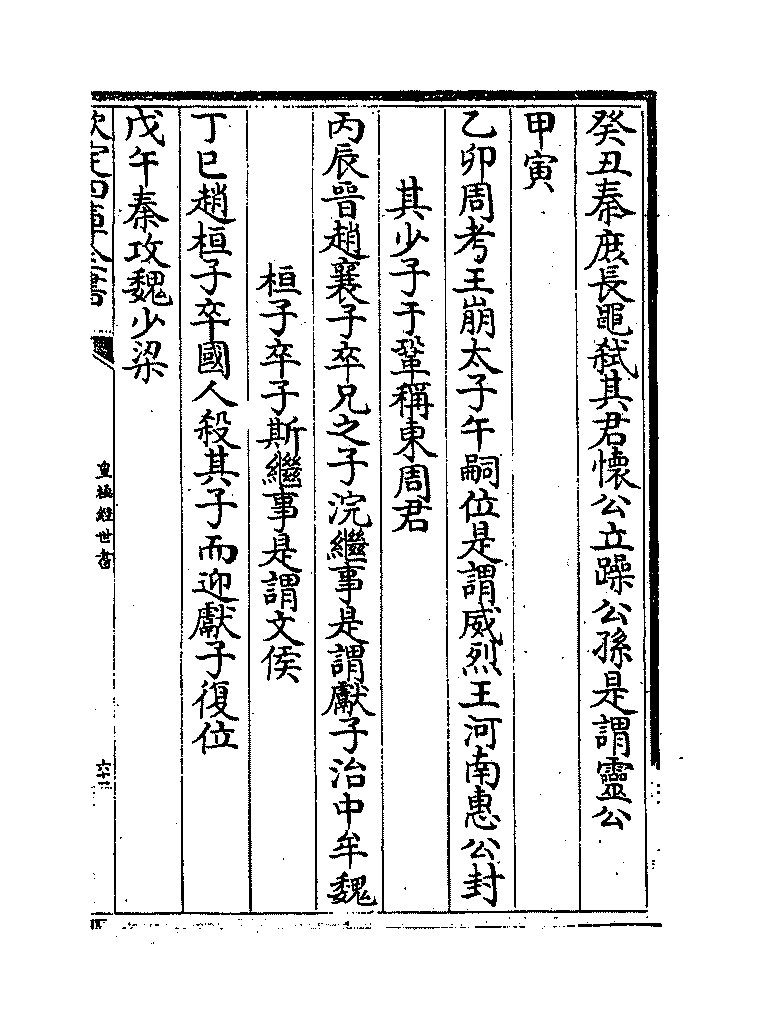 癸丑秦庶長鼂弑其君懷公立躁公孫是謂靈公
甲寅
乙卯周考王崩太子午嗣位是謂威烈王河南惠公封
其少子于鞏稱東周君
丙辰晉趙襄子卒兄之子浣繼事是謂獻子治中牟魏
桓子卒子斯繼事是謂文侯
丁巳趙桓子卒國人殺其子而迎獻子復位
戊午秦攻魏少梁
欽定四庫全書
皇極經世書
六十二